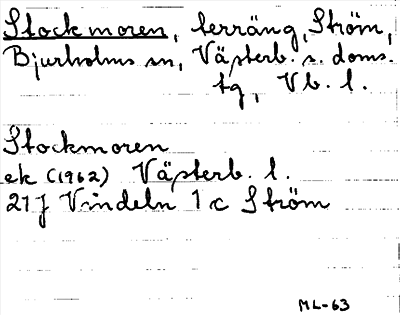 Stockmoren, terräng, Ström,
Bjurholms sn, Västerb. s. doms.
tg, Vb. l.
Stockmoren
ek (1962) Västerb. l.
21J Vindeln 1c Ström
ML-63